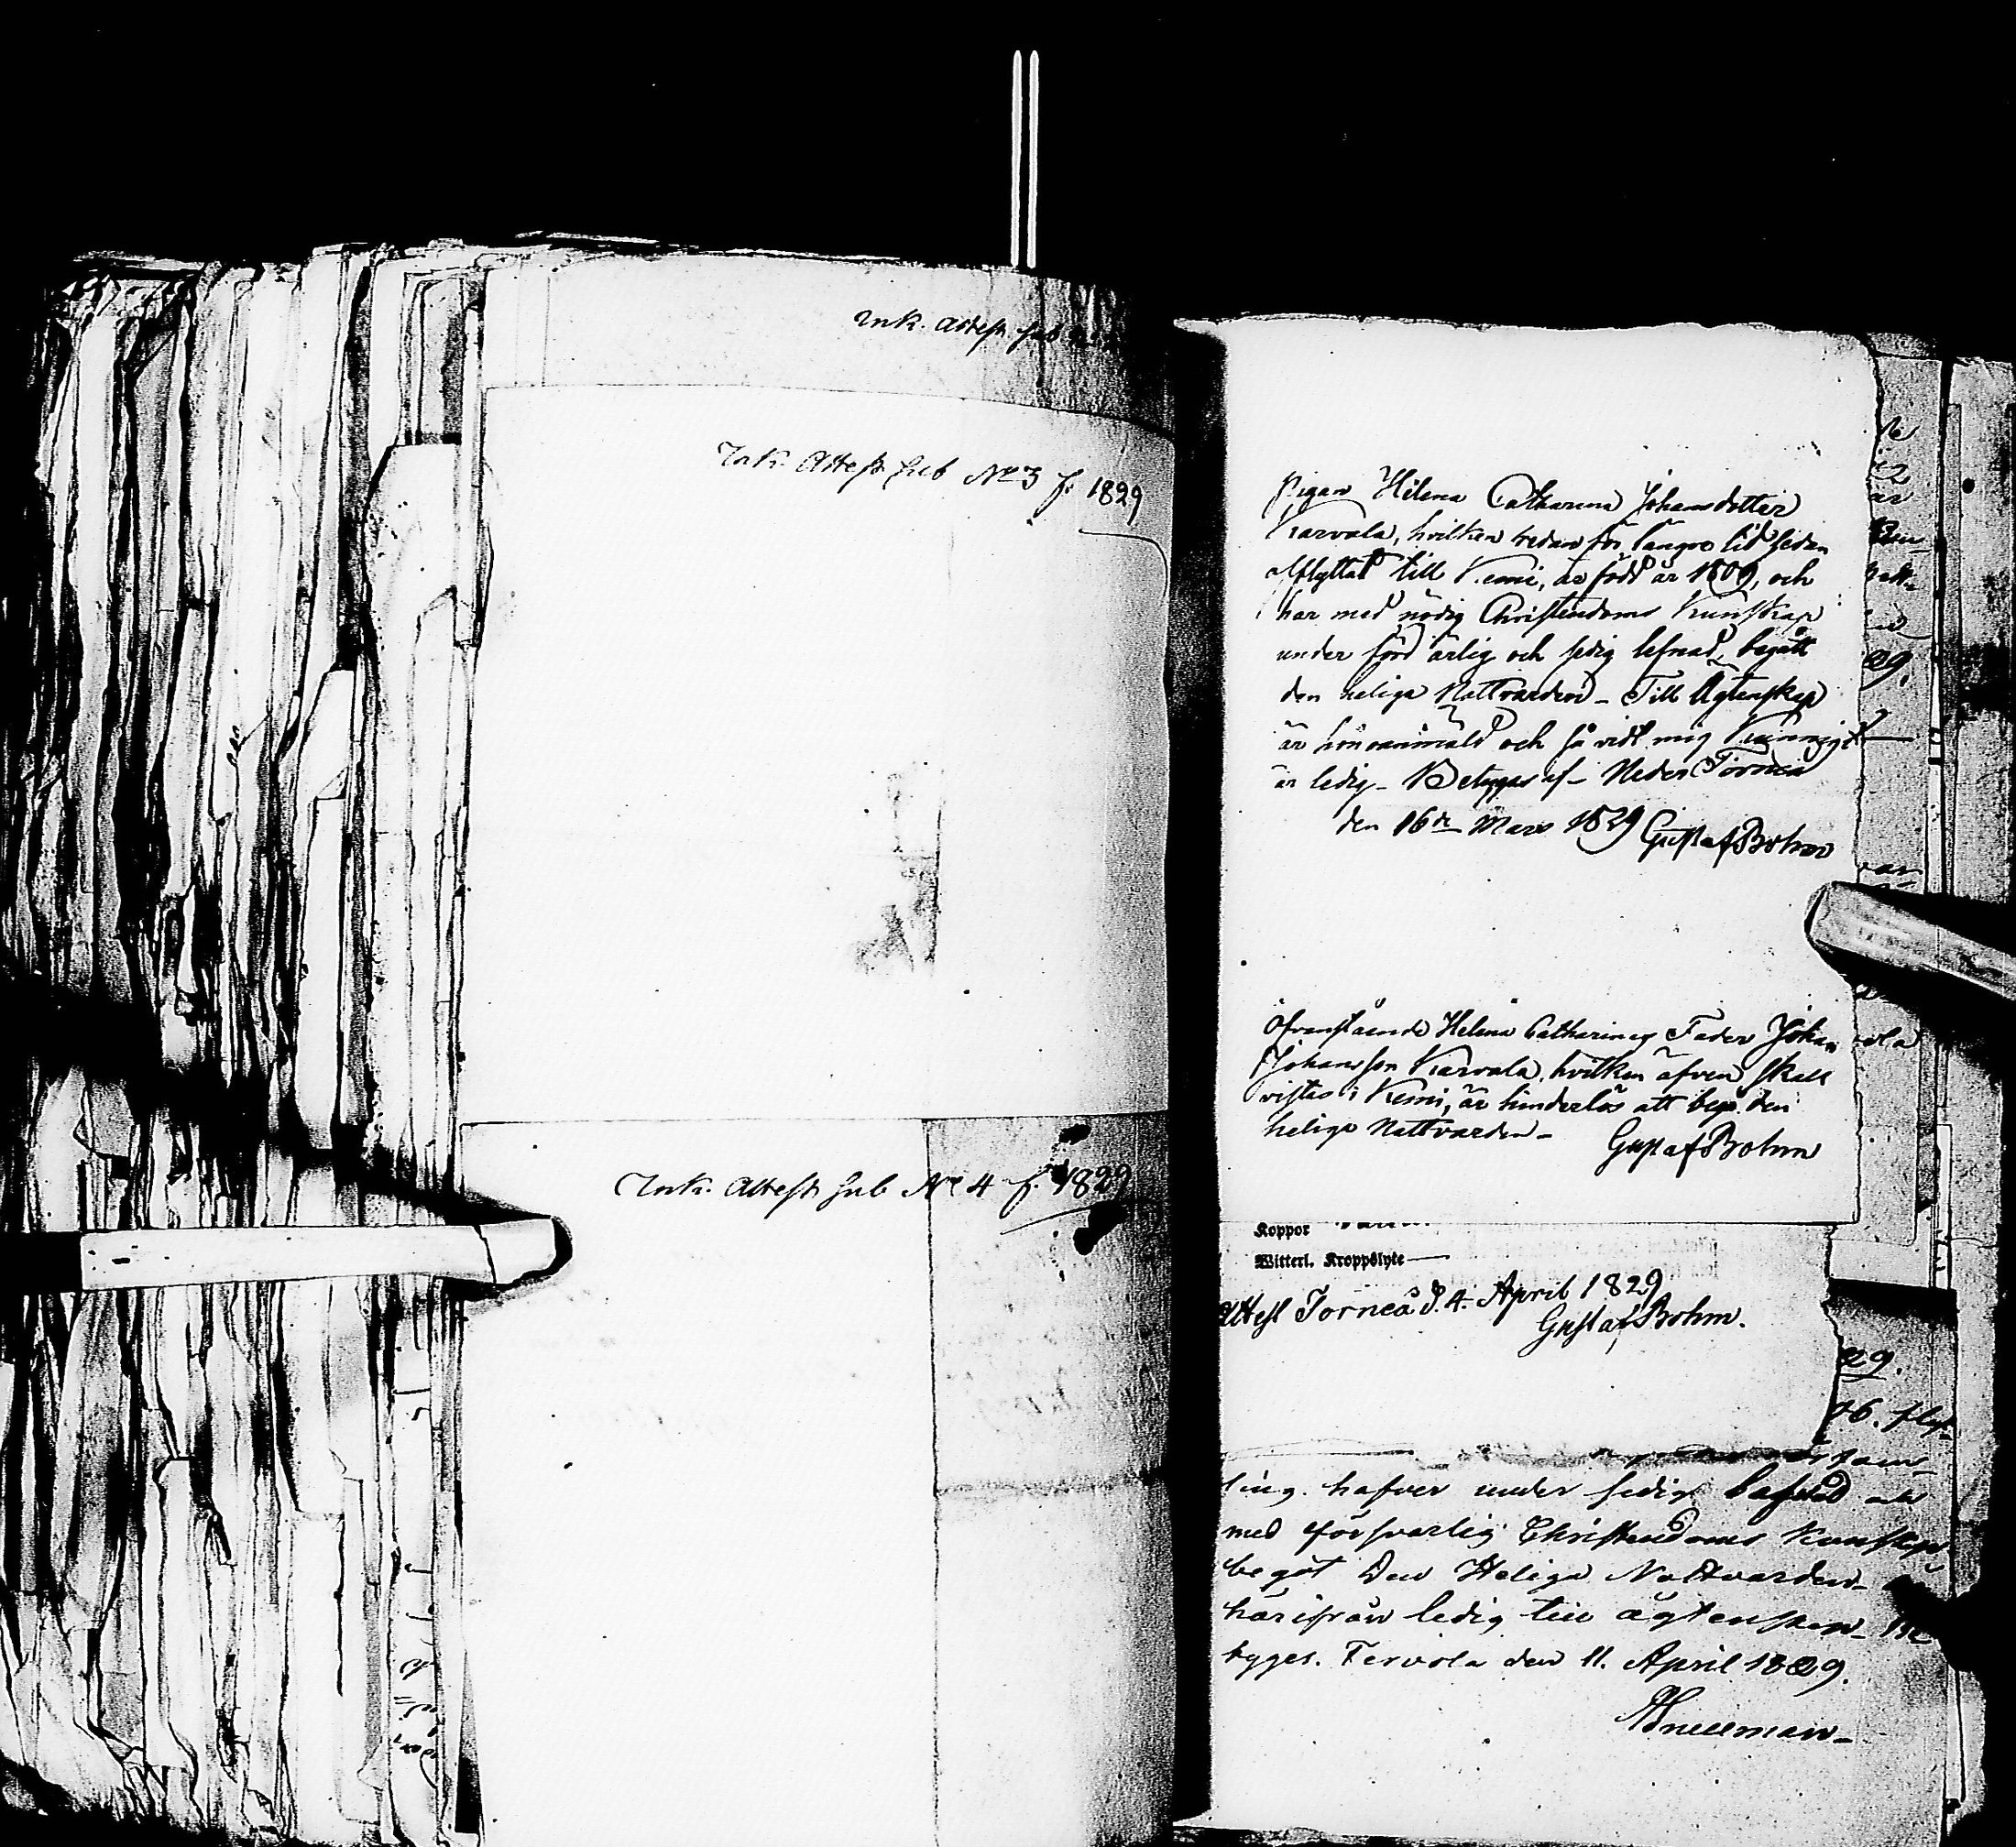 Ink. Attest sub
Ink. Attest sub No 3 f. 1829
Ink. Attest sub No 4 f. 1829
Pigan Helena Catharina Johansdotter
Karvala, hvilken redan för längre tid sedan
afflyttat till Kemi, är född år 1809, och
har med nödig Christendoms Kunskap
under förd ärlig och sedig lefnad, begått
den heliga Nattvarden - Till Ägtenskap
är hon oanmäld och så vidt mig Kunnigt
är ledig - Betygas af - Neder Torneå
den 16de Mars 1829 Gustaf Bohm
Ofvanstående Helena Catharinas Fader Johan
Johansson Karvala, hvilken äfven skall
vistas i Kemi, är hinderlös att beg. den
heliga Nattvarden - Gustaf Bohm
Koppor
Witterl. Kroppslyte
Attest Torneå d. 4. April 1829
Gustaf Bohm.
29.
ling. hafver under sedig lefnad
med försvarlig Christendoms Kunskap
begåt den Heliga Nattvarden
härifrån ledig till ägtenskap - Be
tyges. Tervola den 11. April 1829.
Snellman